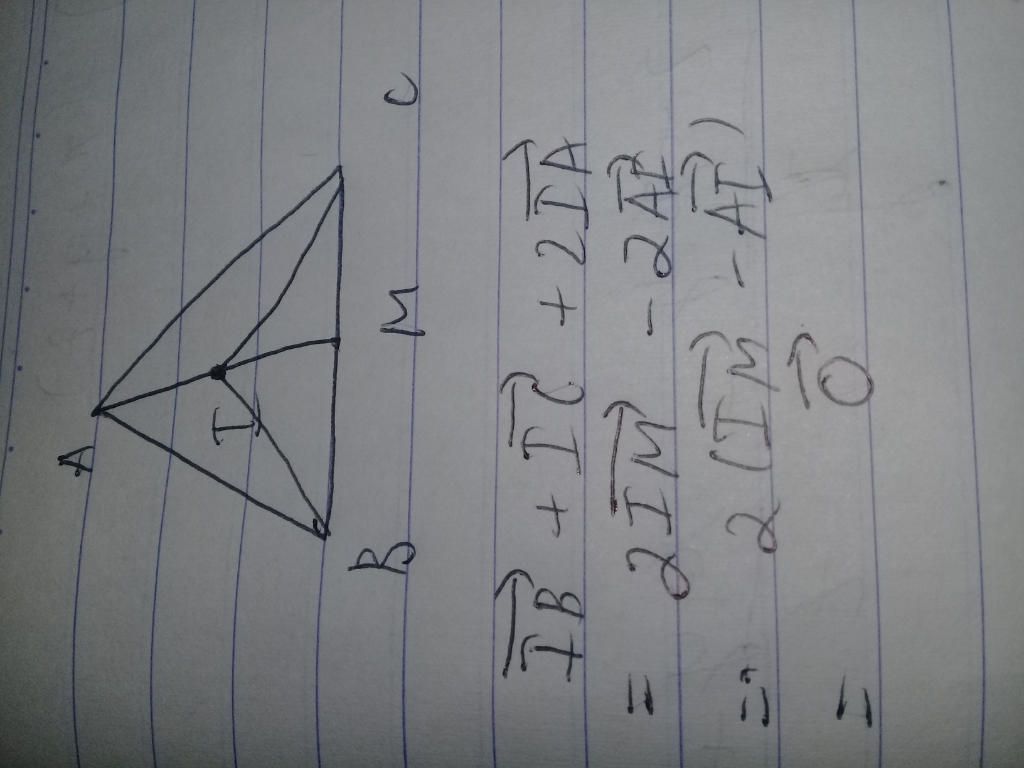 A
I
B M C
$\overrightarrow{IB} + \overrightarrow{IC} + 2\overrightarrow{IA}$
$= 2\overrightarrow{IM} - 2\overrightarrow{AI}$
$= 2(\overrightarrow{IM} - \overrightarrow{AI})$
$= \overrightarrow{0}$